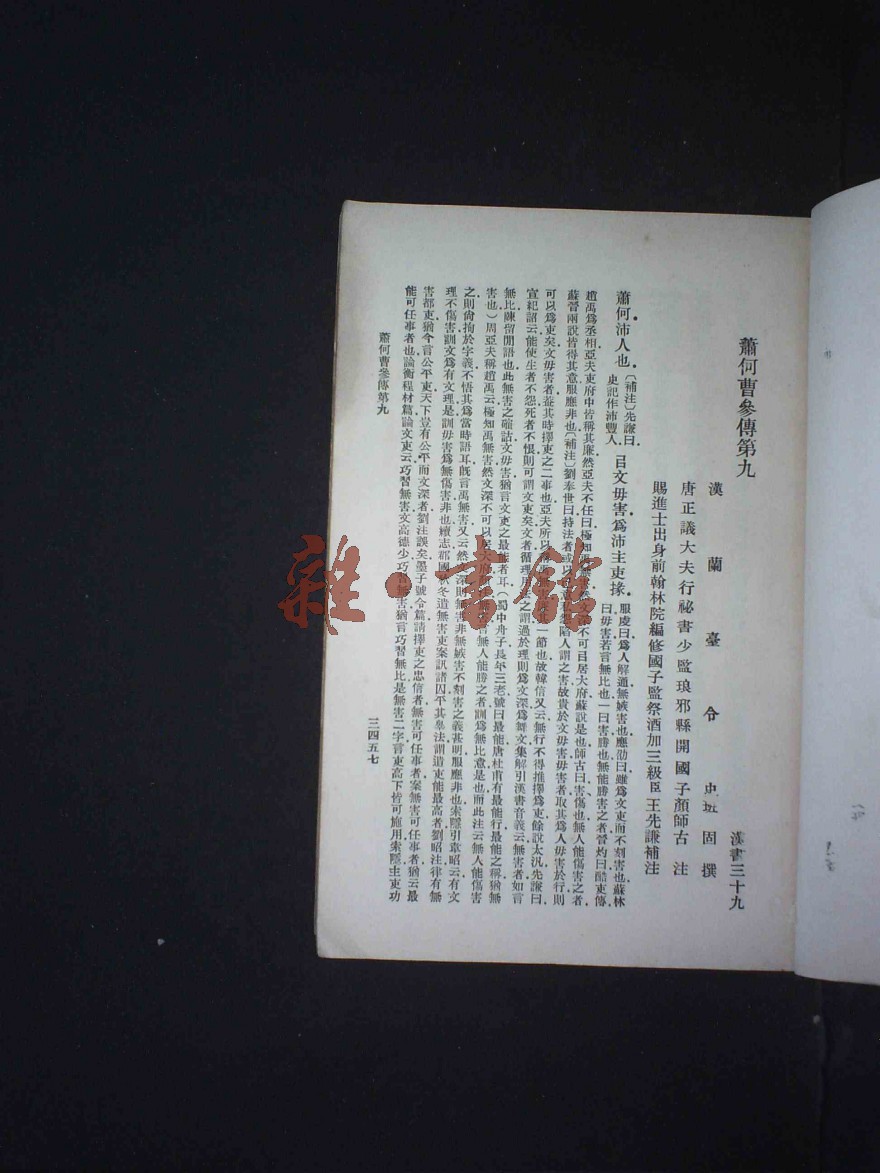 漢書三十九
蕭何曹參傳第九
漢蘭臺令史班固撰
唐正議大夫行祕書少監琅邪縣開國子顏師古注
賜進士出身前翰林院編修國子監祭酒加三級臣王先謙補注
蕭何沛人也〔補注〕先謙曰史記作沛豐人㠯文毋害爲沛主吏掾服虔曰爲人解通無嫉害也應劭曰雖爲文吏而不刻害也蘇林
曰毋害若言無比也一曰害勝也無能勝害之者晉灼曰酷吏傳
趙禹爲丞相亞夫吏府中皆稱其廉然亞夫不任曰極知禹無害然文深不可㠯居大府蘇說是也師古曰害傷也無人能傷害之者
蘇晉兩說皆得其意服應非也〔補注〕劉奉世曰持法者或以己意私陷人謂之害故貴於文毋害毋害者取其爲人毋害於行則
可以爲吏矣文毋害者蓋其時擇吏之二事也亞夫所以一節也故韓信又云無行不得推擇爲吏餘說太汎先謙曰
宣紀詔云能使生者不怨死者不恨則可謂文吏矣文者循理之謂過於理則爲文深爲舞文集解引漢書音義云無害者如言
無比陳留閒語也此無害之確詁文毋害猶言文吏之最能者耳（蜀中舟子長年三老號曰最能唐杜甫有最能行最能之稱猶無
害也）周亞夫稱趙禹云極知禹無害然文深不可以居大府無人能勝之者訓爲無比意是也而此注云無人能傷害
之則尙拘於字義不悟其爲當時語耳旣言禹無害又云然文深則無害非無嫉害不刻害之義甚明服應非也索隱引韋昭云有文
理不傷害訓文爲有文理是訓毋害爲無傷害非也續志郡國秋冬遣無害吏案訊諸囚平其辠法謂遣吏能最高者劉昭注律有無
害都吏猶今言公平吏天下豈有公平而文深者劉注誤矣墨子號令篇請擇吏之忠信者無害可任事者案無害可任事者猶云最
能可任事者也論衡程材篇論文吏云巧習無害文高德少巧習無害猶言巧習無比是無害二字言吏高下皆可應用索隱主吏功
蕭何曹參傳第九
三四五七
雜·書館